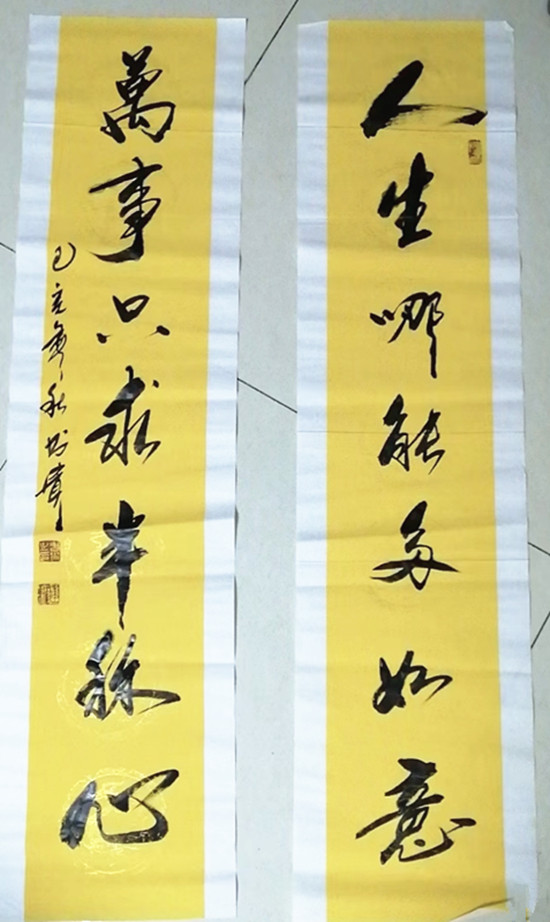 人生哪能多如意
萬事只求半称心
己亥年秋